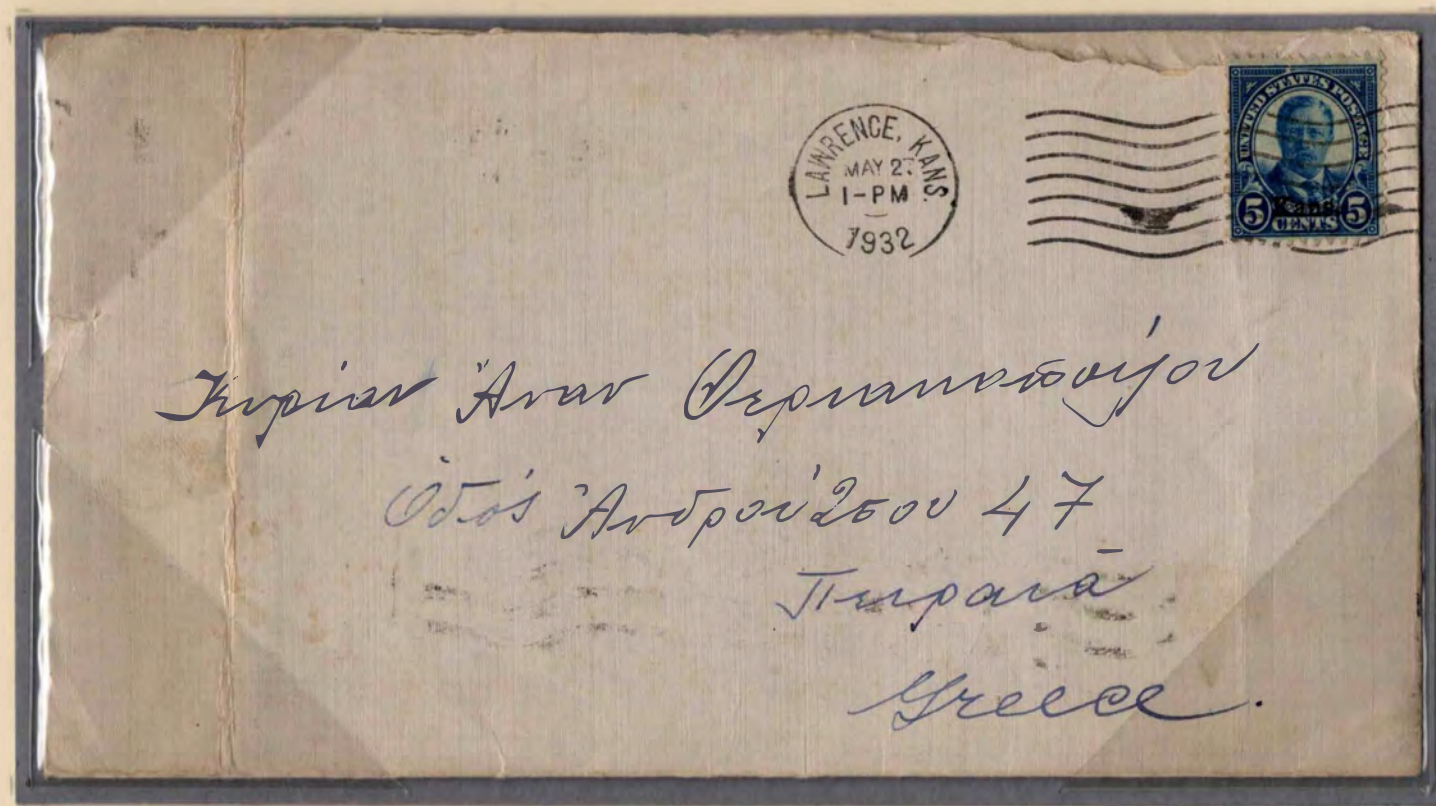 LAWRENCE, KANS.
MAY 27
1-PM
1932
UNITED STATES POSTAGE
5 Kans. 5
CENTS
Κυρίαν Ἄναν
Ὁδός Ἀνδρούτσου 47
Πειραιᾶ
Greece.